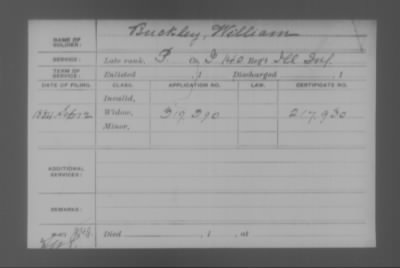 NAME OF SOLDIER: Buckley, William
SERVICE: Late rank, P. Co. I 140 Reg't Ill Inf.
TERM OF SERVICE: Enlisted , 1 Discharged , 1
DATE OF FILING. CLASS. APPLICATION NO. LAW. CERTIFICATE NO.
Invalid,
1884 Sept 2 Widow, 319,390 217,930
Minor,
ADDITIONAL SERVICES:
REMARKS:
Died , 1 , at